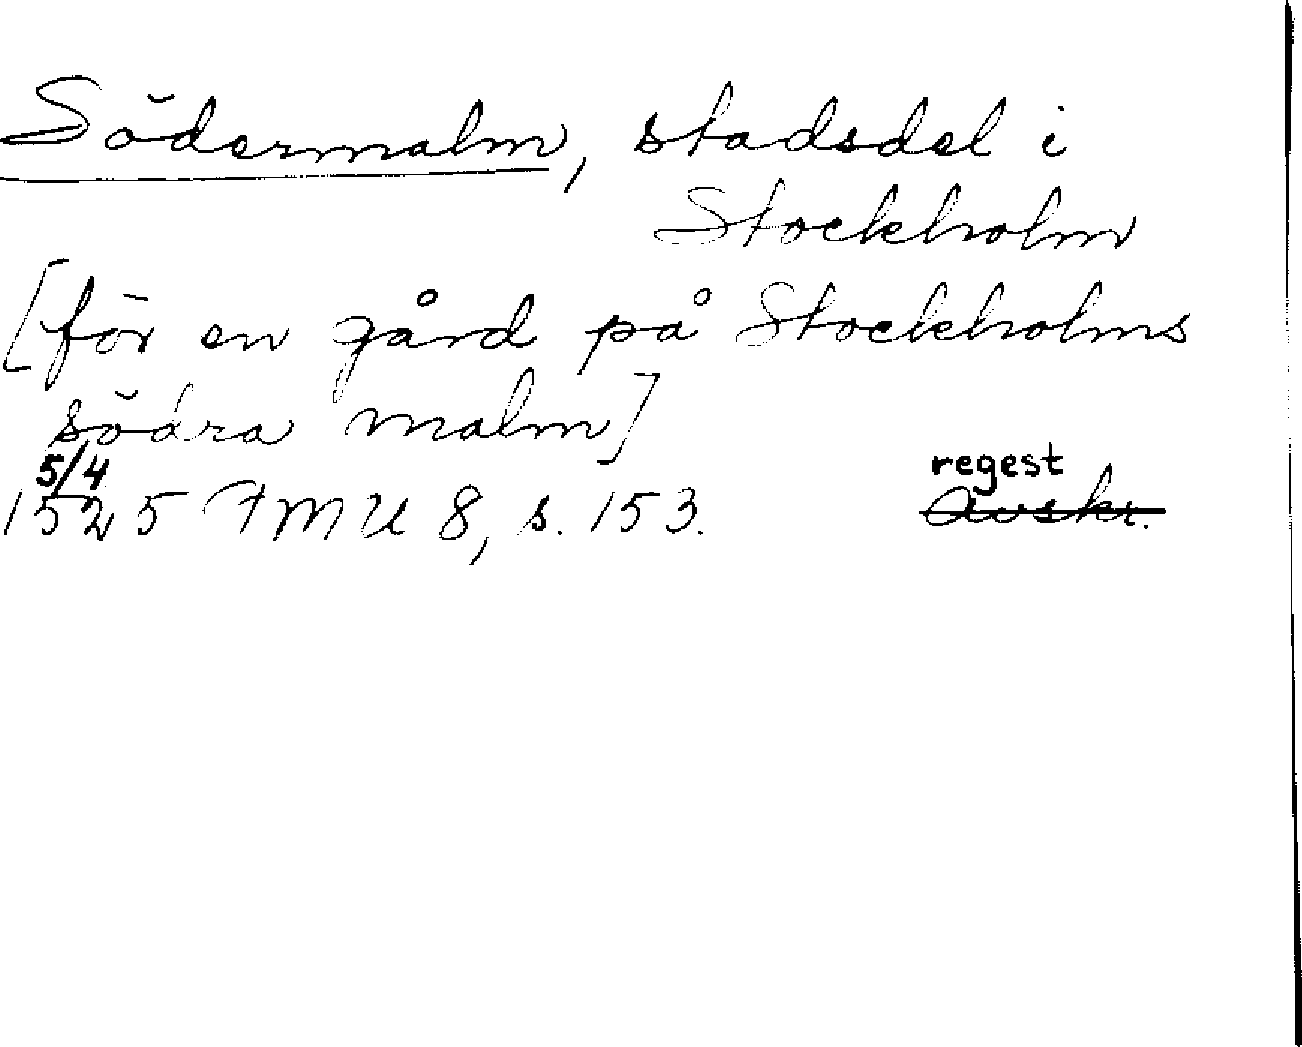 Södermalm, stadsdel i
Stockholm
[för en gård på Stockholms
södra malm]
5/4 regest
1525 FMU 8, s. 153. Avskr.